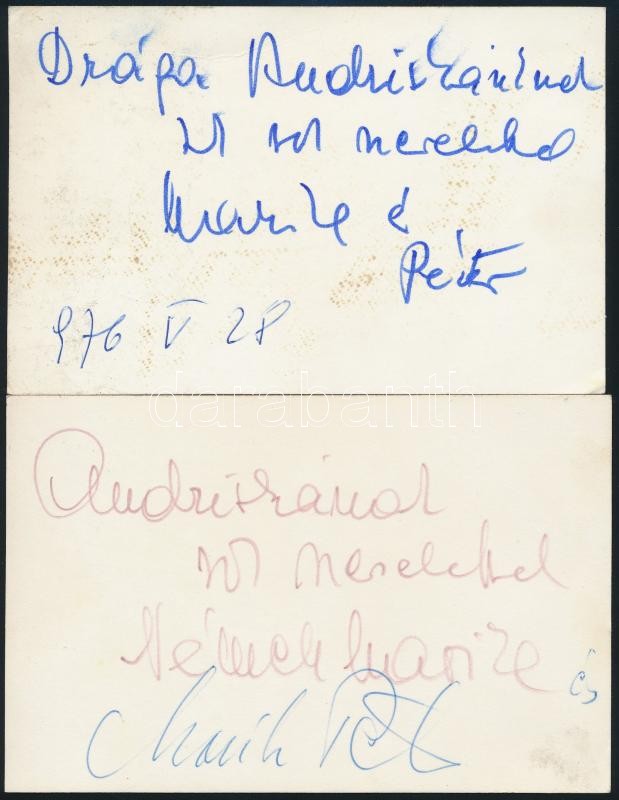 Drága Andriskáink
sok sok szeretettel
Marika é
Péter
976 V 28
darabanth
Andriskának
sok szeretettel
Németh Marika
és
Marik Pét